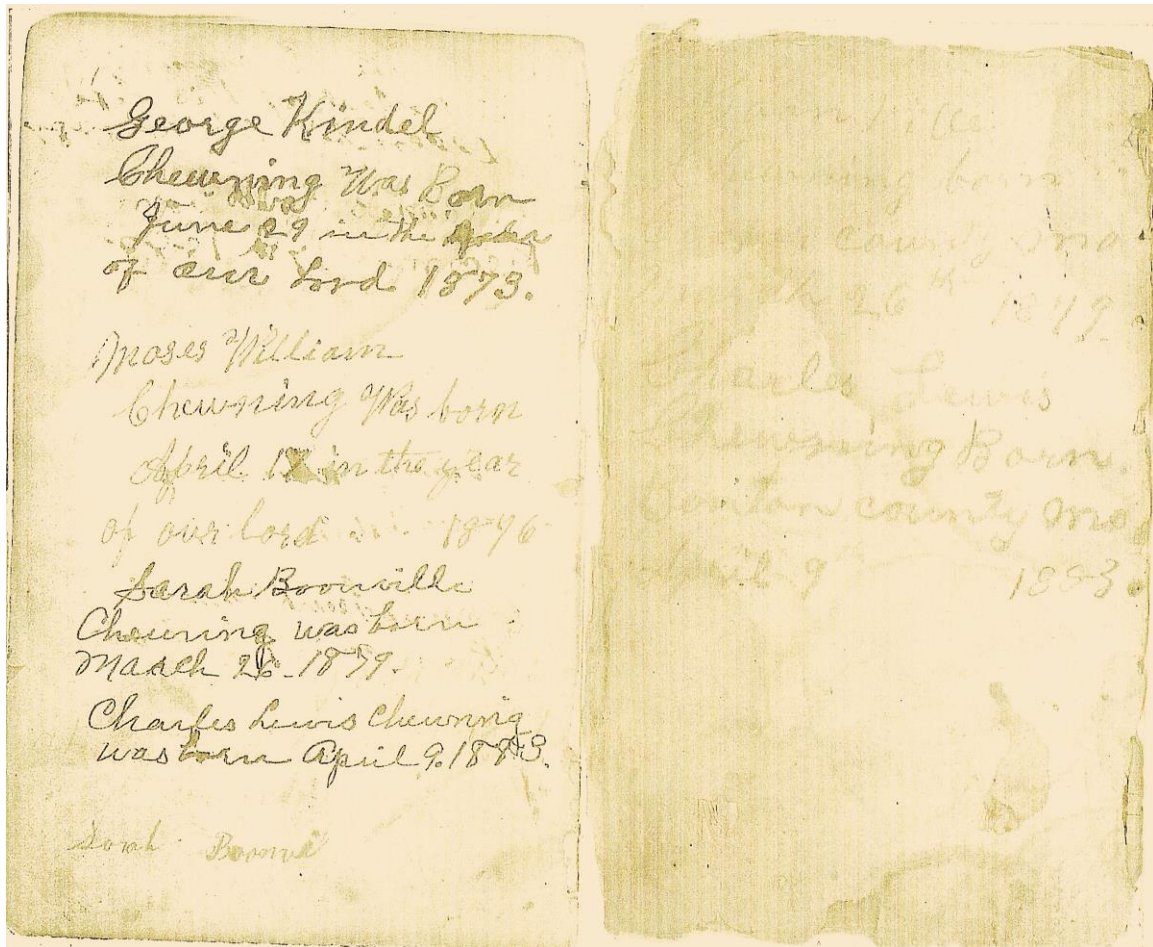 George Kindel
Chewning Was Born
June 29 in the year
of our Lord 1873.
Moses William
Chewning Was born
April in the year
of our lord 1876
Sarah Boonville
Chewning was born
March 26 1879.
Charles Lewis Chewning
was born April 9. 1883.
Sarah Boonvil
born
county Mo
26th 1879
Charles Lewis
Chewning Born
Benton county Mo
April 9 1883